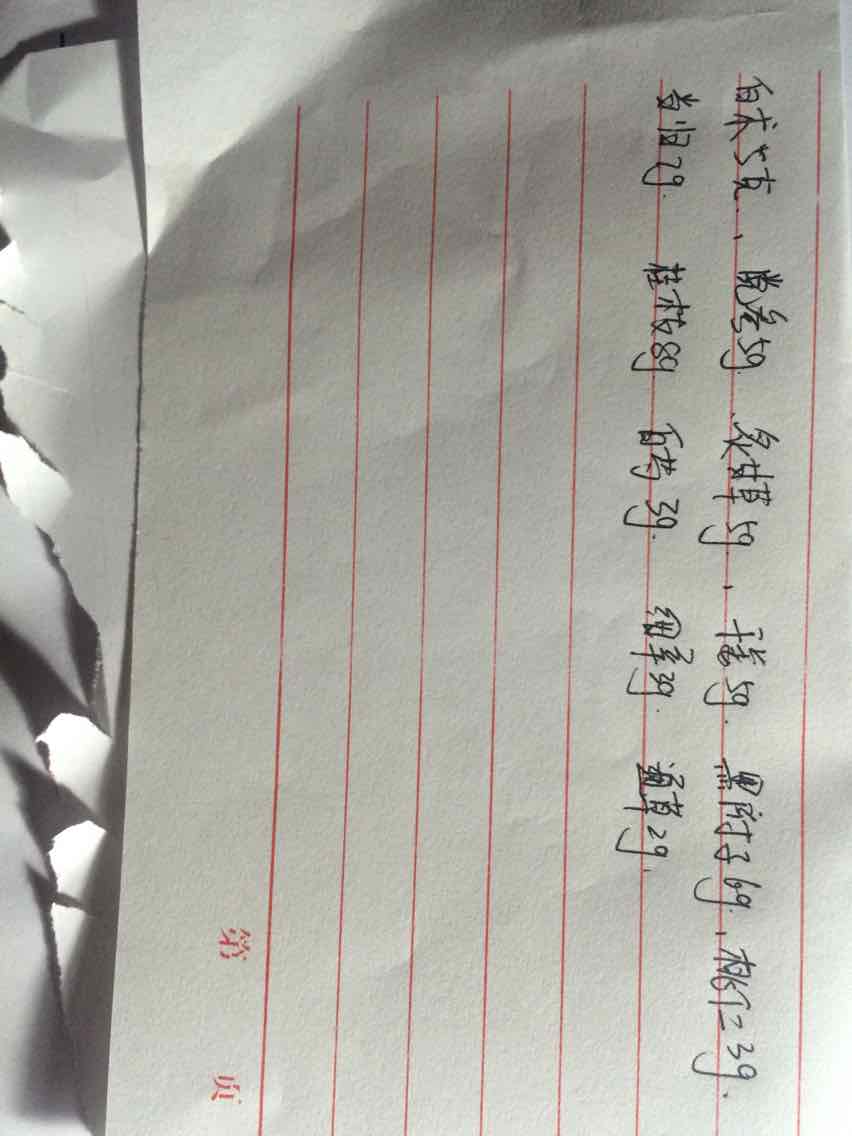 白术5克、党参5g、炙甘草5g、干姜5g.黑附子6g、桃仁3g.
当归2g.桂枝8g 白芍3g.细辛3g.通草2g.
第 页